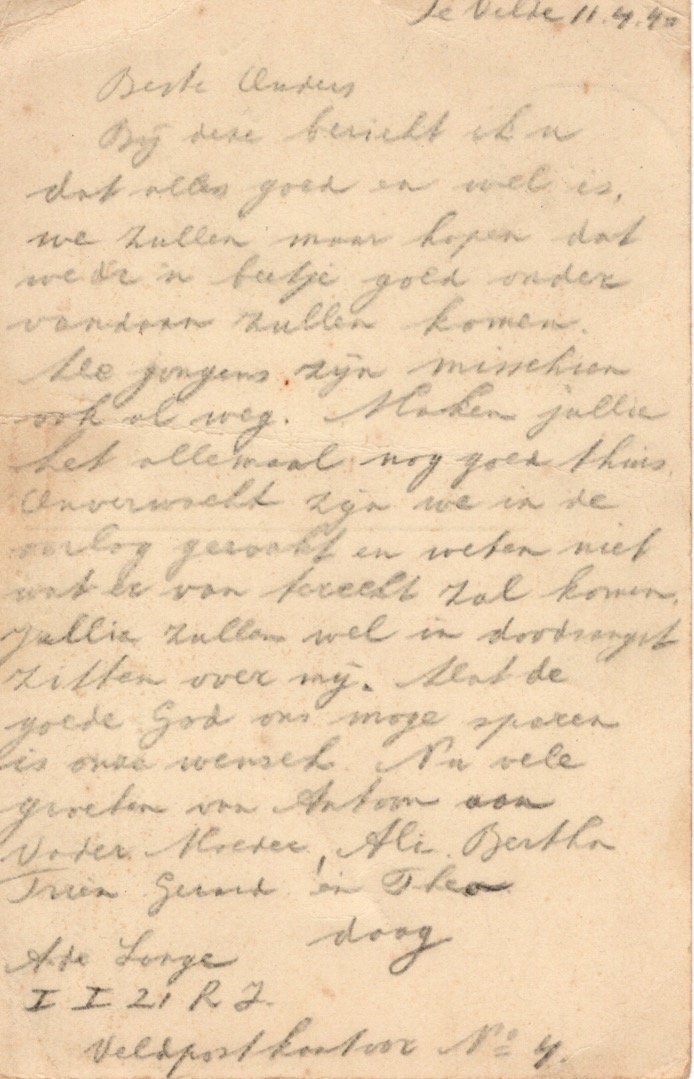 Te Velde 11.4.40
Beste Ouders
Bij deze bericht ik u
dat alles goed en wel is,
we zullen maar hopen dat
we er 'n beetje goed onder
vandaan zullen komen.
De jongens zijn misschien
ook al weg. Maken jullie
het allemaal nog goed thuis.
Onverwacht zijn we in de
oorlog geraakt en weten niet
wat er van terecht zal komen.
Jullie zullen wel in doodsangst
zitten over mij. Dat de
goede God ons moge sparen
is onze wensch. Nu vele
groeten van Antoon aan
Vader Moeder, Ali Bertha
Trien Gerard en Theo
daag
A de Lange
I I 21 R J.
Veldpostkantoor No 4.